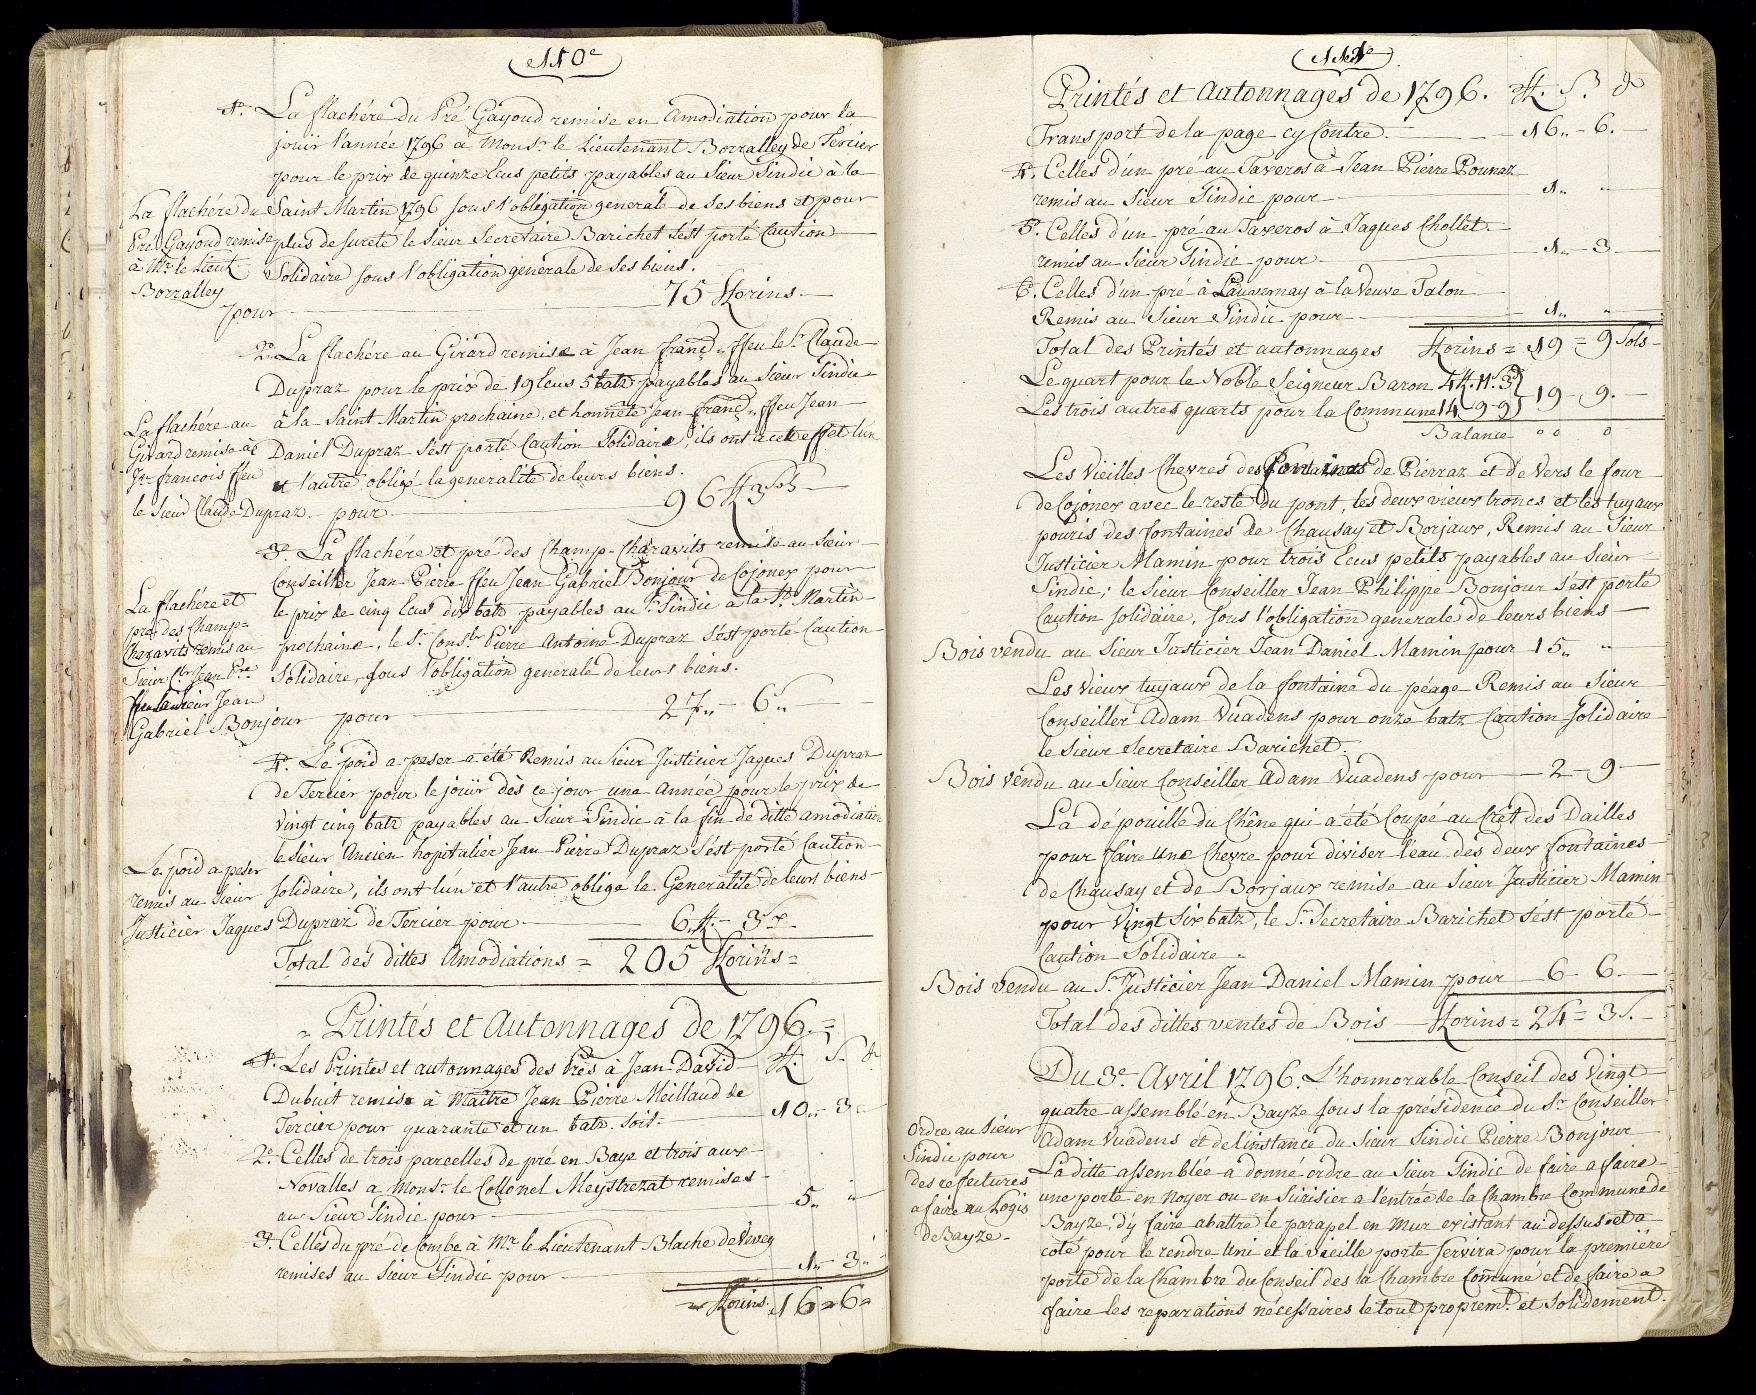 110e
1°. La flachére du Pré Gayoud remise en Amodiation pour la
jouïr l'année 1796 a Monsr. le Lieutenant Borralley de Tercier
pour le prix de quinze Ecus petits payables au Sieur Sindic à la
Saint Martin 1796 sous l'obligation general de ses biens et pour
plus de sureté le Sieur Secretaire Barichet s'est porté Caution
Solidaire sous l'obligation generale de ses biens.
La flachére du
Pré Gayoud remise
à Mr. le Lieut.
Borralley
pour 75 florins
2°. La flachére au Girard remise à Jean franç. ffeu le Sr. Claude
Dupraz pour le prix de 19 Ecus 5 batz payables au Sieur Sindic
à la Saint Martin prochaine, et honnête Jean franç. ffeu Jean
Daniel Dupraz s'est porté Caution Solidaire, ils ont a cet effet l'un
et l'autre obligé la generalité de leurs biens.
La flachére au
Girard remise à
Jn. francois ffeu
le Sieur Claude Dupraz pour 96 ff 3 Sols
3°. La flachére et pré des Champ-Charavits remise au Sieur
Conseiller Jean Pierre ffeu Jean Gabriel Bonjour de Cojonex pour
le prix de cinq Ecus dix batz payables au Sr. Sindic a la St. Martin
prochaine, le Sr. Consler Pierre Antoine Dupraz s'est porté Caution
Solidaire, sous l'obligation generale de leurs biens.
La flachére et
pré des Champ=
Charavits remis au
Sieur Cler Jean Pre.
ffeu Jean
Gabriel Bonjour pour 27,, 6,,
4°. Le poid a peser a été Remis au Sieur Justicier Jaques Dupraz
de Tercier pour le jouïr dès ce jour une Année pour le prix de
Vingt cinq batz payables au Sieur Sindic à la fin de ditte amodiation
le Sieur Ancien hopitalier Jean Pierre Dupraz s'est porté Caution
solidaire, ils ont l'un et l'autre obligé la Generalité de leurs biens
Le poid a peser
remis au Sieur
Justicier Jaques Dupraz de Tercier pour 6 ff 3 S.
Total des dittes Amodiations = 205 florins =
Printés et Autonnages de 1796. =
ff. S. d
1°. Les Printés et autonnages des Prés à Jean David
Dubuit remise à Maître Jean Pierre Meillaud de
Tercier pour quarante et un batz. soit. 10,, 3
2°. Celles de trois parcelles de pré en Baye et trois aux
Novalles a Monsr. le Collonel Meystrezat remises
au Sieur Sindic pour 5,, ,,
3°. Celles du pré de Combe à Mr. le Lieutenant Blache de Vevey
remises au Sieur Sindic pour 1,, 3,,
florins. 16 = 6 =
111e
Printés et Autonnages de 1796. ff. S. d
Transport de la page cy Contre. 16,, 6.
4°. Celles d'un pré au Taveros à Jean Pierre Pounaz
remis au Sieur Sindic pour 1,, ,,
5°. Celles d'un pré au Taveros à Jaques Chollet.
remis au Sieur Sindic pour 1,, 3
6°. Celles d'un pré à Lauvernay à la Veuve Talon
Remis au Sieur Sindic pour 1,, ,,
Total des Printés et autonnages florins = 19 = 9 Sols
Le quart pour le Noble Seigneur Baron 4 ff. 11. 3
Les trois autres quarts pour la Commune 14 9 9 } 19 9.
Balance 00 0
Les Vieilles Chevres des fontaines de Pierraz et de Vers le four
de Cojonex avec le reste du pont, les deux vieux troncs et les tuyaux
pouris des fontaines de Chausay et Borjaux, Remis au Sieur
Justicier Mamin pour trois Ecus petits payables au Sieur
Sindic; le Sieur Conseiller Jean Philippe Bonjour s'est porté
Caution solidaire, sous l'obligation generale de leurs biens
Bois vendu au Sieur Justicier Jean Daniel Mamin pour 15,, ,,
Les Vieux tuyaux de la fontaine du péage Remis au Sieur
Conseiller Adam Vuadens pour onze batz Caution Solidaire
le Sieur Secretaire Barichet.
Bois vendu au Sieur Conseiller Adam Vuadens pour 2 9
La dépouille du Chêne qui a été Coupé au Crêt des Dailles
pour faire une Chevre pour diviser l'eau des deux fontaines
de Chausay et de Borjaux remise au Sieur Justicier Mamin
pour Vingt Six batz, le Sr. Secretaire Barichet s'est porté
Caution Solidaire.
Bois vendu au Sr. Justicier Jean Daniel Mamin pour 6 6.
Total des dittes ventes de Bois florins = 24 = 3 S.
Du 3e. Avril 1796. L'honnorable Conseil des Vingt
quatre assemblé en Bayze sous la présidence du Sr. Conseiller
Adam Vuadens et de l'instance du Sieur Sindic Pierre Bonjour
La ditte assemblée a donné ordre au Sieur Sindic de faire a faire
une porte en Noyer ou en Surisier a l'entrée de la Chambre Commune de
Bayze, d'y faire abattre le parapel en mur existant au dessus et a
coté pour le rendre uni et la vieille porte servira pour la première
porte de la Chambre du Conseil des la Chambre Comune et de faire a
faire les reparations nécessaires le tout propremt. et Solidement.
Ordre au Sieur
Sindic pour
des refectures
a faire au Logis
de Bayze